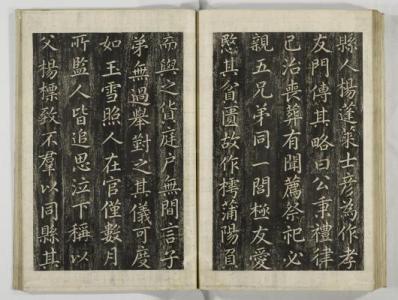 縣人楊蓬萊士彥為作孝
友門傳其略曰公秉禮律
己治喪葬有聞薦祭祀必
親五兄弟同一閤極友愛
愍其貧匱故作樗蒲陽負
而與之貨庭戶無間言子
弟無過舉對之其儀可度
如玉雪照人在官僅數月
所監人皆追思泣下稱以
父楊標致不羣以同縣其